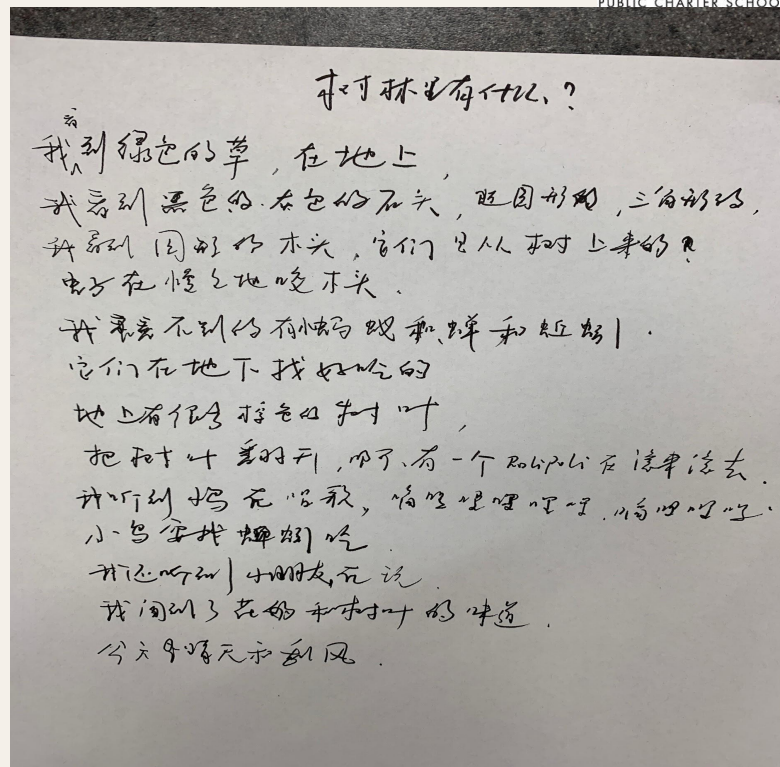 PUBLIC CHARTER SCHOO
树林里有什么?
我看到绿色的草,在地上,
我看到黑色的.灰色的石头,椭圆形的,三角形的,
我看到圆形的木头,它们是从树上来的。
虫子在慢慢地咬木头.
我看不到的有小蚂蚁和蝉和蚯蚓.
它们在地下找好吃的
地上有很多棕色的树叶,
把树叶翻开,有一个RoliPoli在滚来滚去.
我听到鸟在唱歌,嘀哩哩哩哩哩,嘀哩哩哩.
小鸟要找蚯蚓吃
我还听到小朋友在说
我闻到了花的和树叶的味道.
今天是晴天和刮风.